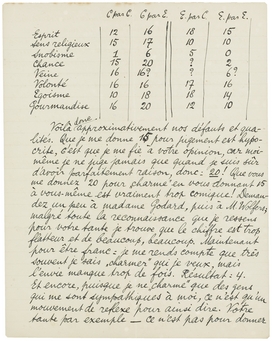 C par C. C par E. E. par C. E. par E.
Esprit 12 16 18 15
Sens religieux 15 17 10 10
Snobisme 1 6 5 0
Chance 15 20 ? 2
Veine 16 16? ? ?
Volonté 16 16 17 16
Egoisme 10 18 18 14
Gourmandise 16 20 12 10
Voilà sont approximativement nos défauts et qua-
lités. Que je me donne 15 pour jugement est hypo-
crite, c'est que je me fie à votre opinion, car moi-
même je ne juge jamais que quand je suis sûr
d'avoir parfaitement raison, donc: 20! Que vous
me donniez 20 pour charme en vous donnant 15
à vous-même est vraiment trop comique! Deman-
dez un peu à madame Godard, puis à M. Wolfers;
malgré toute la reconnaissance que je ressens
pour votre tante je trouve que le chiffre est trop
flatteur et de beaucoup, beaucoup. Maintenant
pour être franc: je me rends compte que très
souvent je sais "charmer" qui je veux, mais
l'envie manque trop de fois. Résultat: 4.
Et encore, puisque je ne "charme" que des gens
qui me sont sympathiques à moi, ce n'est qu'un
mouvement de reflexe pour ainsi dire. Votre
tante par exemple — ce n'est pas pour donner